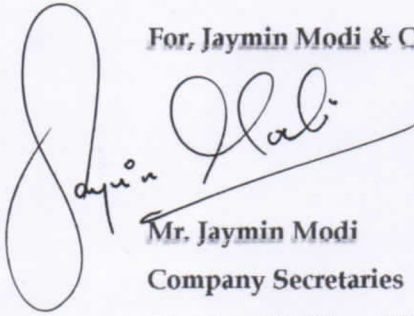 For, Jaymin Modi & C
Jaymin Modi
Mr. Jaymin Modi
Company Secretaries